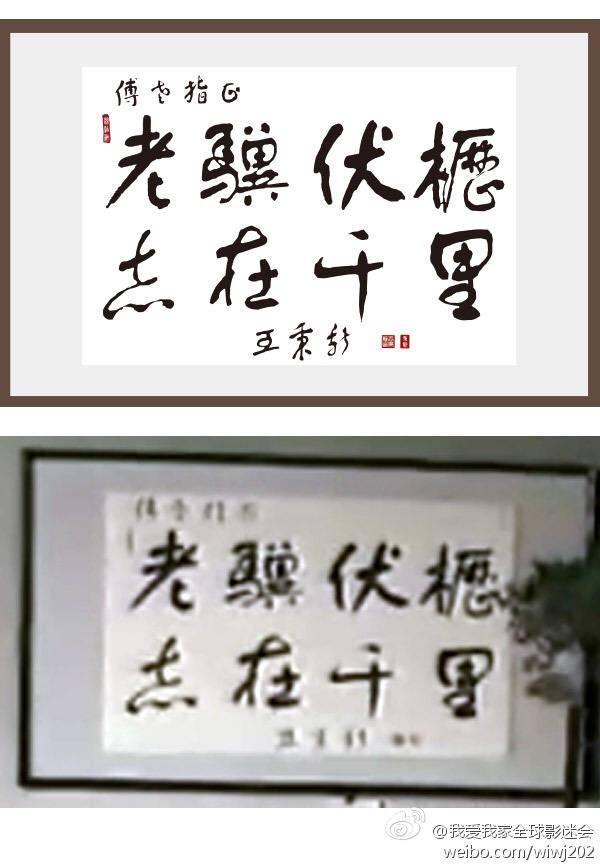 傅老指正
老驥伏櫪
志在千里
王秉
老驥伏櫪
志在千里
@我爱我家全球影迷会
weibo.com/wiwj202